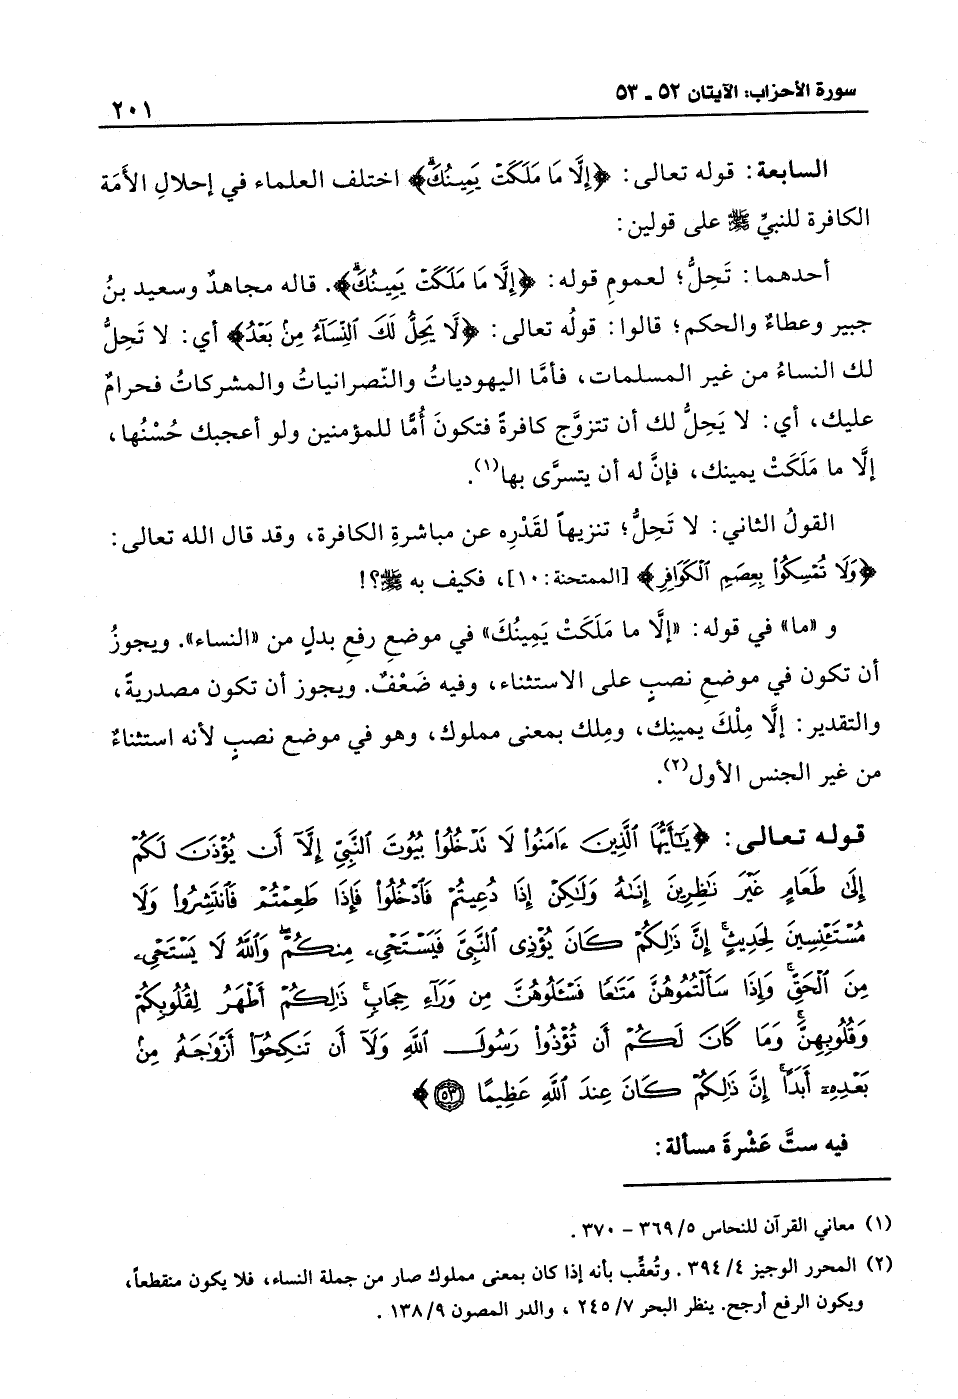 سورة الأحزاب: الآيتان ٥٢ ـ ٥٣
٢٠١
السابعة: قوله تعالى: ﴿إِلَّا مَا مَلَكَتْ يَمِينُكَۗ﴾ اختلف العلماء في إحلالِ الأَمَة
الكافرة للنبيِّ ﷺ على قولين:
أحدهما: تَحِلُّ؛ لعمومِ قوله: ﴿إِلَّا مَا مَلَكَتْ يَمِينُكَۗ﴾. قاله مجاهدٌ وسعيد بنُ
جبير وعطاءٌ والحكم؛ قالوا: قولُه تعالى: ﴿لَّا يَحِلُّ لَكَ ٱلنِّسَآءُ مِنۢ بَعْدُ﴾ أي: لا تَحِلُّ
لك النساءُ من غير المسلمات، فأمَّا اليهودياتُ والنَّصرانياتُ والمشركاتُ فحرامٌ
عليك، أي: لا يَحِلُّ لك أن تتزوَّج كافرةً فتكونَ أُمًّا للمؤمنين ولو أعجبك حُسْنُها،
إلَّا ما مَلَكَتْ يمينك، فإنَّ له أن يتسرَّى بها(١).
القولُ الثاني: لا تَحِلُّ؛ تنزيهاً لقَدْرِه عن مباشرةِ الكافرة، وقد قال الله تعالى:
﴿وَلَا تُمْسِكُوا۟ بِعِصَمِ ٱلْكَوَافِرِ﴾ [الممتحنة: ١٠]، فكيف به ﷺ؟!
و «ما» في قوله: «إلَّا ما مَلَكَتْ يَمِينُكَ» في موضعِ رفعِ بدلٍ من «النساء». ويجوزُ
أن تكون في موضعِ نصبٍ على الاستثناء، وفيه ضَعْفٌ. ويجوز أن تكون مصدريةً،
والتقدير: إلَّا مِلْكَ يمينِك، ومِلك بمعنى مملوك، وهو في موضع نصبٍ لأنه استثناءٌ
من غير الجنس الأول(٢).
قوله تعالى: ﴿يَٰٓأَيُّهَا ٱلَّذِينَ ءَامَنُوا۟ لَا تَدْخُلُوا۟ بُيُوتَ ٱلنَّبِىِّ إِلَّآ أَن يُؤْذَنَ لَكُمْ
إِلَىٰ طَعَامٍ غَيْرَ نَٰظِرِينَ إِنَىٰهُ وَلَٰكِنْ إِذَا دُعِيتُمْ فَٱدْخُلُوا۟ فَإِذَا طَعِمْتُمْ فَٱنتَشِرُوا۟ وَلَا
مُسْتَـْٔنِسِينَ لِحَدِيثٍۚ إِنَّ ذَٰلِكُمْ كَانَ يُؤْذِى ٱلنَّبِىَّ فَيَسْتَحْىِۦ مِنكُمْۖ وَٱللَّهُ لَا يَسْتَحْىِۦ
مِنَ ٱلْحَقِّۚ وَإِذَا سَأَلْتُمُوهُنَّ مَتَٰعًا فَسْـَٔلُوهُنَّ مِن وَرَآءِ حِجَابٍۚ ذَٰلِكُمْ أَطْهَرُ لِقُلُوبِكُمْ
وَقُلُوبِهِنَّۚ وَمَا كَانَ لَكُمْ أَن تُؤْذُوا۟ رَسُولَ ٱللَّهِ وَلَآ أَن تَنكِحُوٓا۟ أَزْوَٰجَهُۥ مِنۢ
بَعْدِهِۦٓ أَبَدًاۚ إِنَّ ذَٰلِكُمْ كَانَ عِندَ ٱللَّهِ عَظِيمًا ٥٣﴾
فيه ستَّ عَشْرةَ مسألة:
(١) معاني القرآن للنحاس ٥/ ٣٦٩ - ٣٧٠ .
(٢) المحرر الوجيز ٤/ ٣٩٤ . وتُعقِّب بأنه إذا كان بمعنى مملوك صار من جملة النساء، فلا يكون منقطعاً،
ويكون الرفع أرجح. ينظر البحر ٧/ ٢٤٥ ، والدر المصون ٩/ ١٣٨ .